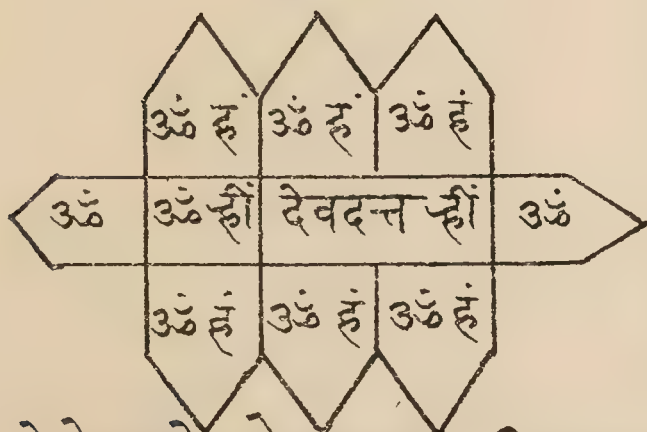 ॐ हं ॐ हं ॐ हं
ॐ ॐ ह्रीं देवदत्त ह्रीं ॐ
ॐ हं ॐ हं ॐ हं